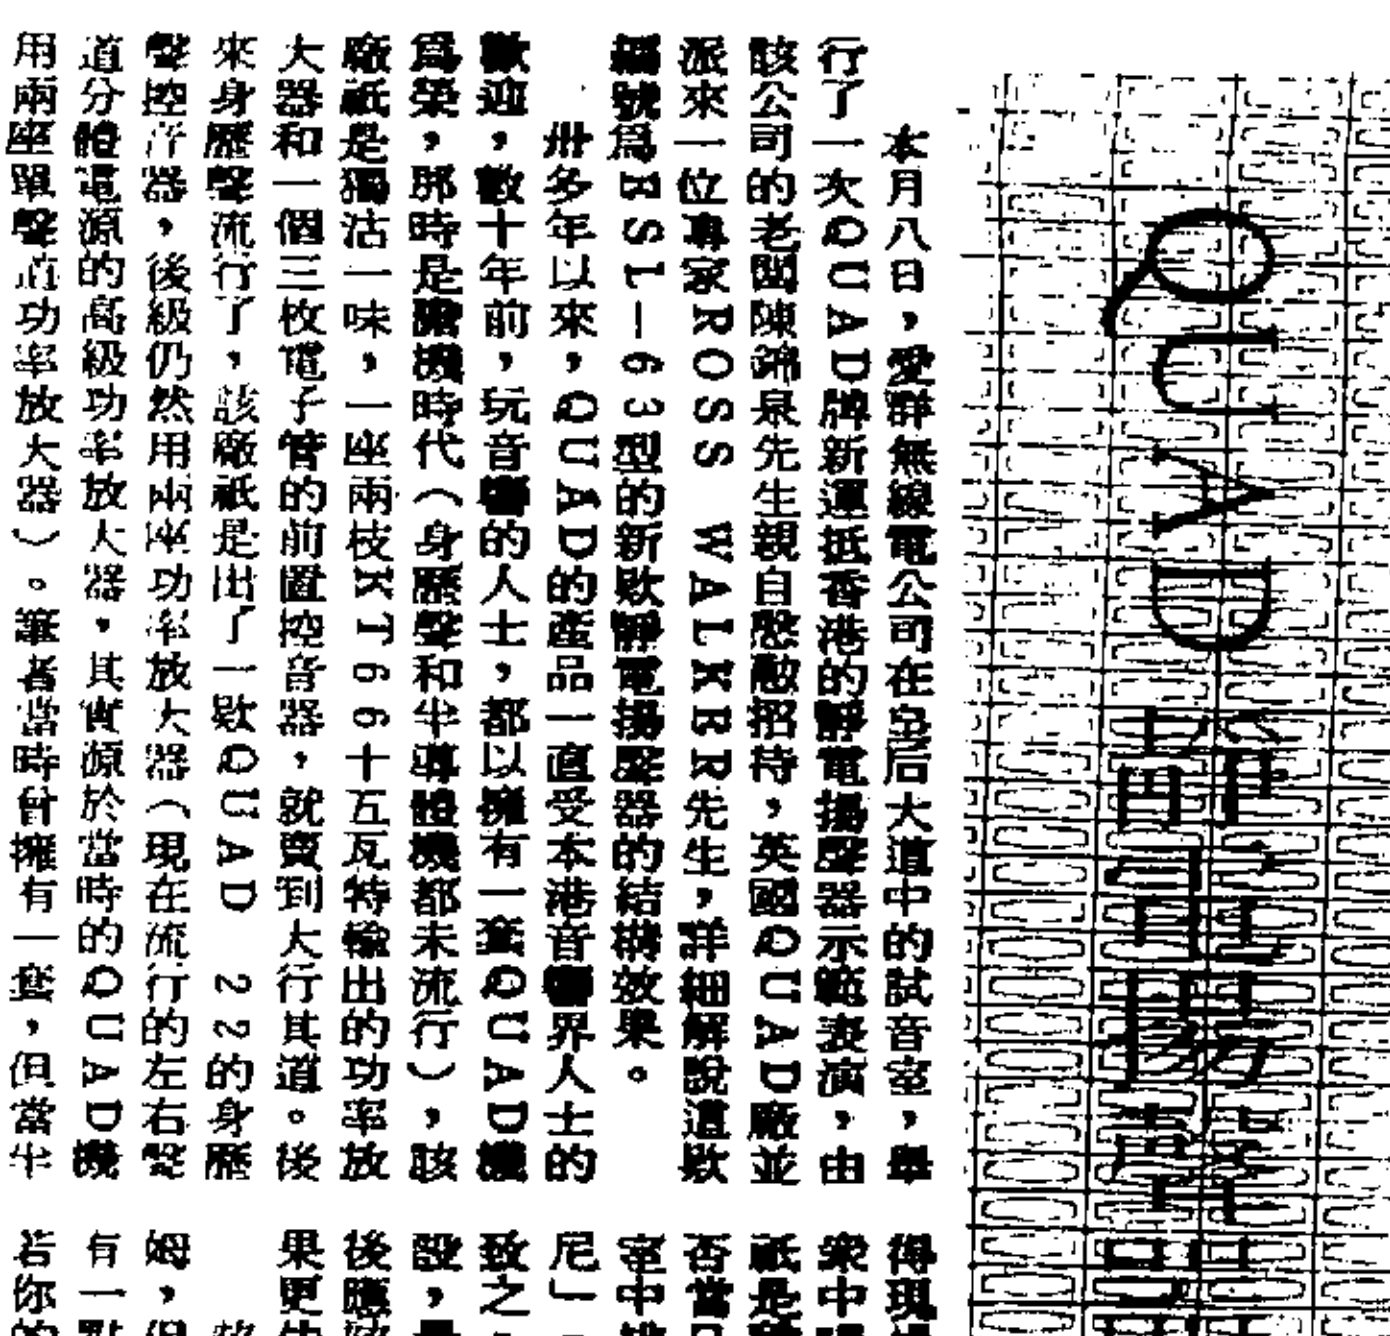 QUAD靜電揚聲器
本月八日，愛群無線電公司在皇后大道中的試音室，舉
行了一次QUAD牌新運抵香港的靜電揚聲器示範表演，由
該公司的老闆陳錦泉先生親自慇懃招待，英國QUAD廠並
派來一位專家ROSS WALKRR先生，詳細解說這欵
編號爲RSL—63型的新欵靜電揚聲器的結構效果。
卅多年以來，QUAD的產品一直受本港音響界人士的
歡迎，數十年前，玩音響的人士，都以擁有一套QUAD機
爲榮，那時是膽機時代（身歷聲和半導體機都未流行），該
廠祇是獨沽一味，一座兩枝KT66十五瓦特輸出的功率放
大器和一個三枚電子管的前置控音器，就賣到大行其道。後
來身歷聲流行了，該廠祇是出了一欵QUAD 22的身歷
聲控音器，後級仍然用兩座功率放大器（現在流行的左右聲
道分體電源的高級功率放大器，其實源於當時的QUAD機
用兩座單聲道功率放大器）。筆者當時曾擁有一套，但當半
得現
衆中
祇是
否當
室中
尼」
致之
設，
後應
果更
姆，
有一點
若你的